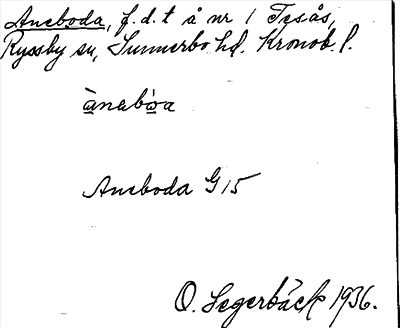 Aneboda, f.d.t å nr 1 Tesås,
Ryssby sn, Sunnerbo hd. Kronob. l.
ànebòa
Aneboda G 15
O. Segerbäck 1936.